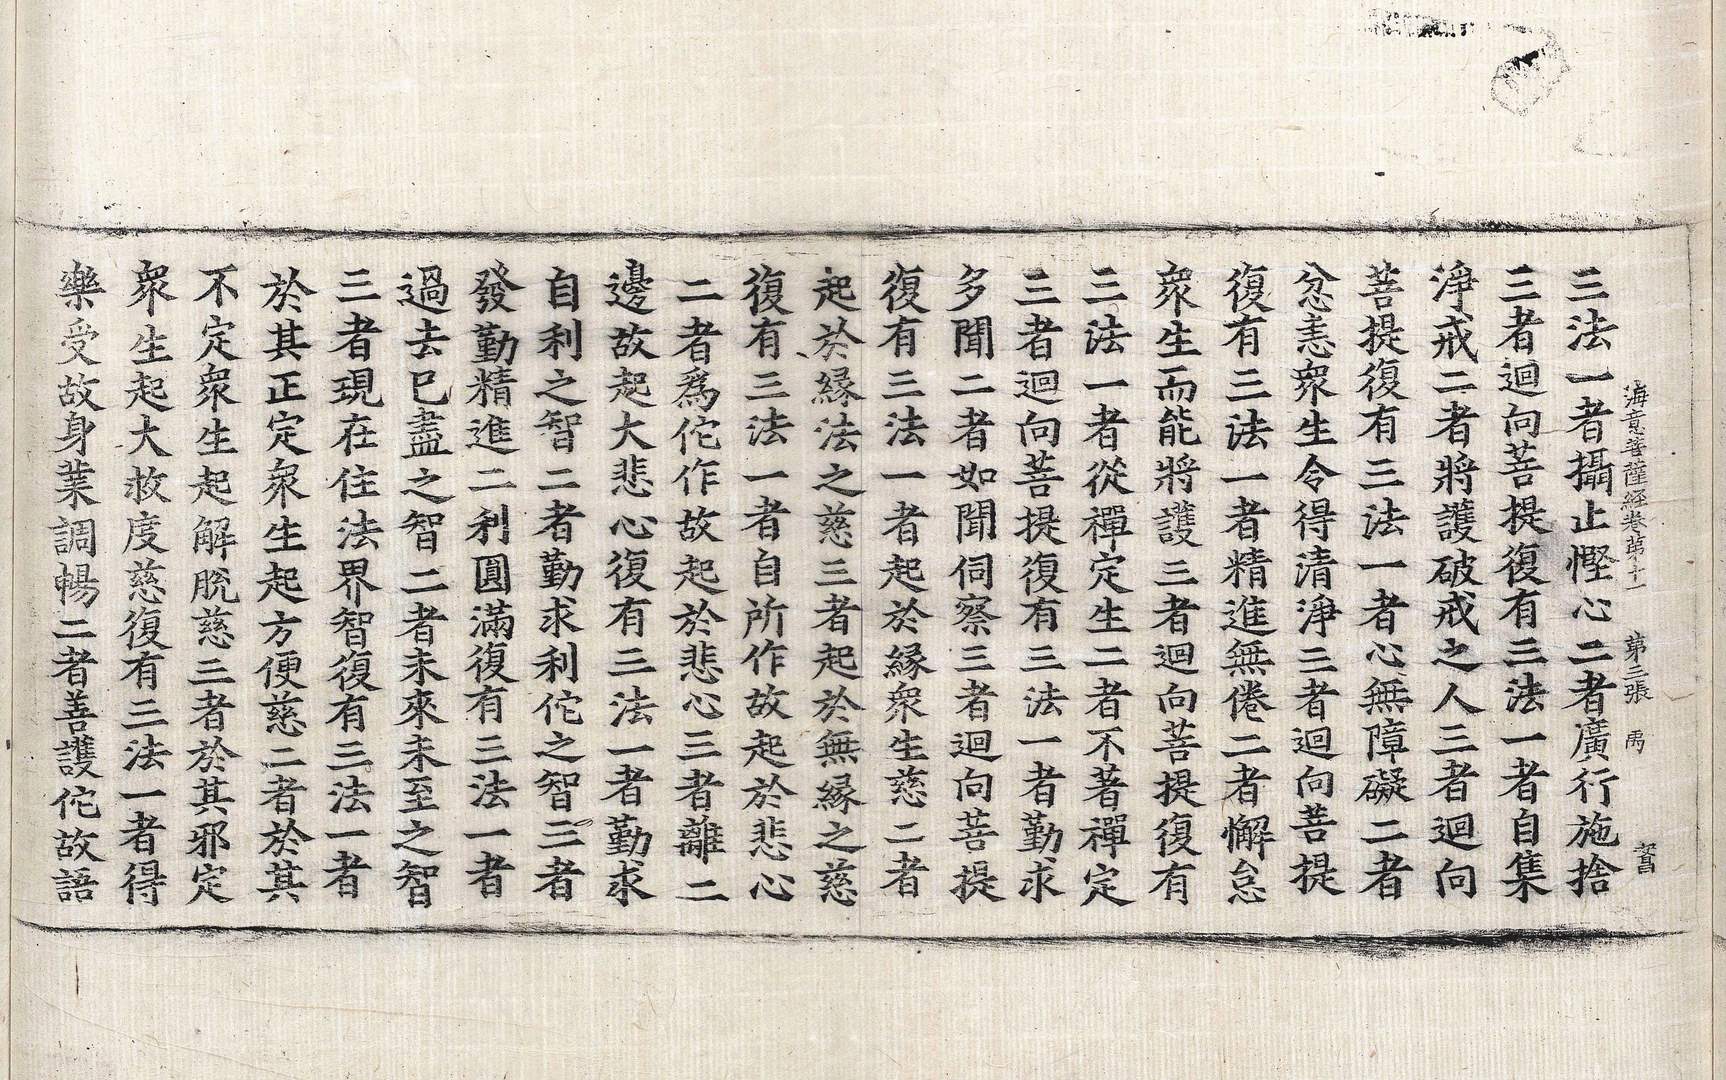 海意菩薩經卷第十一　第三張　禹
三法一者攝止慳心二者廣行施捨
三者迴向菩提復有三法一者自集
淨戒二者將護破戒之人三者迴向
菩提復有三法一者心無障礙二者
忿恚衆生令得清淨三者迴向菩提
復有三法一者精進無倦二者懈怠
衆生而能將護三者迴向菩提復有
三法一者從禪定生二者不著禪定
三者迴向菩提復有三法一者勤求
多聞二者如聞伺察三者迴向菩提
復有三法一者起於緣衆生慈二者
起於緣法之慈三者起於無緣之慈
復有三法一者自所作故起於悲心
二者爲佗作故起於悲心三者離二
邊故起大悲心復有三法一者勤求
自利之智二者勤求利佗之智三者
發勤精進二利圓滿復有三法一者
過去已盡之智二者未來未至之智
三者現在住法界智復有三法一者
於其正定衆生起方便慈二者於其
不定衆生起解脫慈三者於其邪定
衆生起大救度慈復有三法一者得
樂受故身業調暢二者善護佗故語